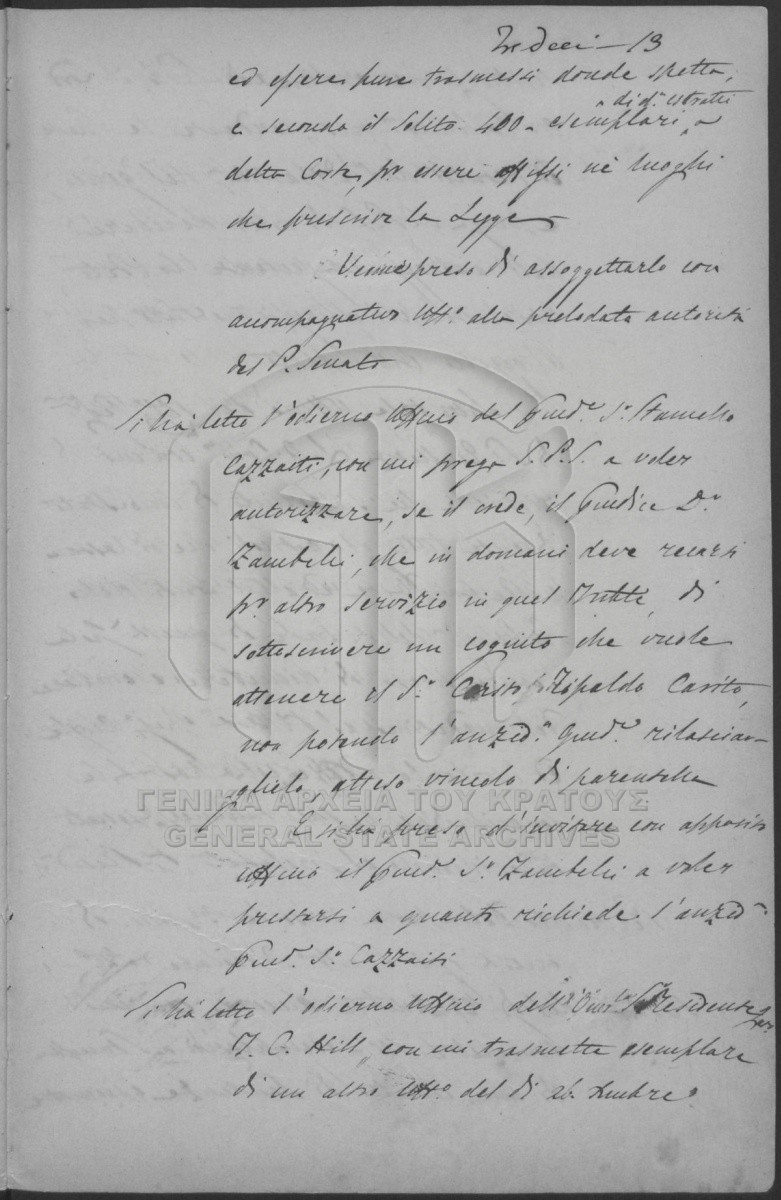 Tredeci - 13
ed essere pure trasmessi donde spetta;
e secondo il solito 400 - esemplari di d.ⁱ estratti a
detta Corte, pʳ essere affissi nè luoghi
che prescrive la Legge
Venne preso di assoggettarlo con
accompagnativo Uff.º alla prelodata autorità
del P. Senato
Si hà letto l'odierno Uffício del Giud.ᵉ S.ʳ Stamello
Cazzaiti, con cui prega S.P.S. a voler
autorizzare, se il crede, il Giudice D.ʳ
Zambelli, che in domani deve recarsi
pʳ altro servizio in quel, di
sottoscrivere un cognito che vuole
ottenere il S.ʳ Ripaldo Carito,
non potendo l'anzid.º Giud.ᵉ rilasciar-
glielo, atteso vincolo di parentella
E si hà preso d'invitare con apposito
Uffício il Giud.ᵉ S.ʳ Zambelli a voler
prestarsi a quanto richiede l'anzid.º
Giud.ᵉ S.ʳ Cazzaiti
Si hà letto l'odierno Uffício dell' Residente
J. C. Hill, con cui trasmette esemplare
di un altro Uff.º del di 26
ΓΕΝΙΚΑ ΑΡΧΕΙΑ ΤΟΥ ΚΡΑΤΟΥΣ
GENERAL STATE ARCHIVES